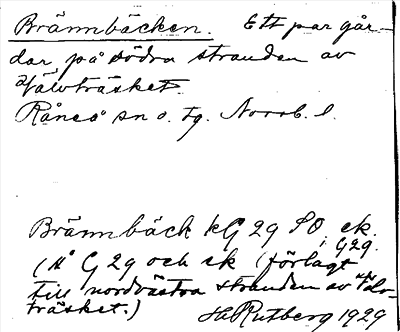 Brännbäcken. Ett par går-
dar på södra stranden av
Råneå sn o. tg. Norrb. l.
Brännbäck kG 29 SO, ek.
G29.
(H° G 29 och ek (förlagt
till nordvästra stranden av
träsket.)
H Rutberg 1929